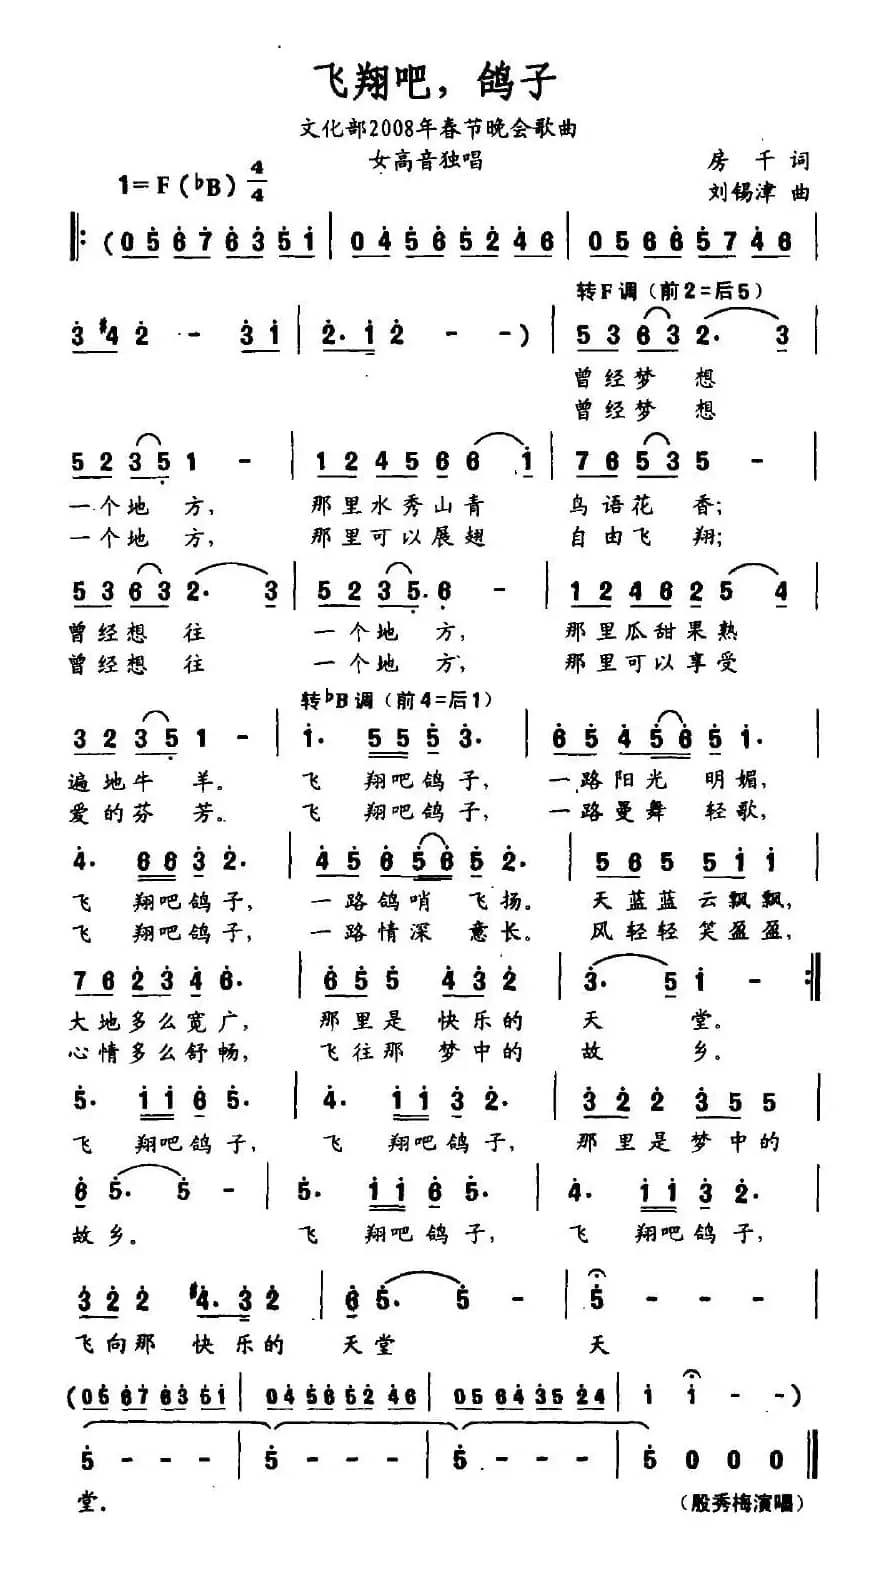 飞翔吧，鸽子
文化部2008年春节晚会歌曲
女高音独唱
房千词
1=F(♭B) 4/4
刘锡津 曲
(0 5 6 7 6 3 5 1 | 0 4 5 6 5 2 4 6 | 0 5 6 6 5 7 4 6 |
转F调（前2=后5）
3 #4 2 - 3 1 | 2. 1 2 - -) | 5 3 6 3 2. 3 |
曾经梦 想
曾经梦 想
5 2 3 5 1 - | 1 2 4 5 6 6 1 | 7 6 5 3 5 - |
一个地 方， 那里水秀山青 鸟语花 香；
一个地 方， 那里可以展翅 自由飞 翔；
5 3 6 3 2. 3 | 5 2 3 5. 6 - | 1 2 4 6 2 5 4 |
曾经想 往 一个地 方， 那里瓜甜果熟
曾经想 往 一个地 方， 那里可以享受
转♭B调（前4=后1）
3 2 3 5 1 - | 1. 5 5 5 3. | 6 5 4 5 6 5 1. |
遍地牛 羊。 飞 翔吧鸽子， 一路阳光 明媚，
爱的芬 芳。 飞 翔吧鸽子， 一路曼舞 轻歌，
4. 6 6 3 2. | 4 5 6 5 6 5 2. | 5 6 5 5 1 1 |
飞 翔吧鸽子， 一路鸽哨 飞扬。 天蓝蓝 云飘飘，
飞 翔吧鸽子， 一路情深 意长。 风轻轻 笑盈盈，
7 6 2 3 4 6. | 6 5 5 4 3 2 | 3. 5 1 - :|
大地多么宽广， 那里是 快乐的 天 堂。
心情多么舒畅， 飞往那 梦中的 故 乡。
5. 1 1 6 5. | 4. 1 1 3 2. | 3 2 2 3 5 5 |
飞 翔吧鸽子， 飞 翔吧鸽子， 那里是梦中的
6 5. 5 - | 5. 1 1 6 5. | 4. 1 1 3 2. |
故乡。 飞 翔吧鸽子， 飞 翔吧鸽子，
3 2 2 #4. 3 2 | 6 5. 5 - | 5 - - - |
飞向那 快乐的 天堂 天
(0 5 6 7 6 3 5 1 | 0 4 5 6 5 2 4 6 | 0 5 6 4 3 5 2 4 | 1 1 - -)
5 - - - | 5 - - - | 5 - - - | 5 0 0 0 ||
堂.
（殷秀梅演唱）